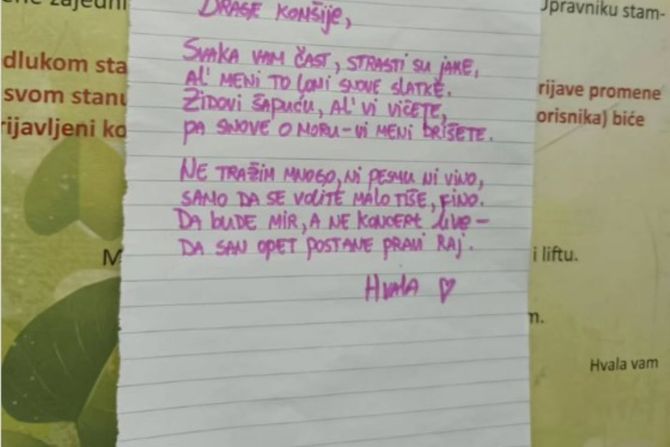 zajedni
Upravniku stam-
dlukom sta
svom stanu
rijavljeni ko
rijave promene
orisnika) biće
DRAGE KOMŠIJE,
SVAKA VAM ČAST, STRASTI SU JAKE,
AL' MENI TO LOMI SNOVE SLATKE.
ZIDOVI ŠAPUĆU, AL' VI VIČETE,
PA SNOVE O MORU-VI MENI BRIŠETE.
NE TRAŽIM MNOGO, NI PESMU NI VINO,
SAMO DA SE VOLITE MALO TIŠE, FINO.
DA BUDE MIR, A NE KONCERT LIVE-
DA SAN OPET POSTANE PRAVI RAJ.
HVALA ♡
M
i liftu.
m.
Hvala vam